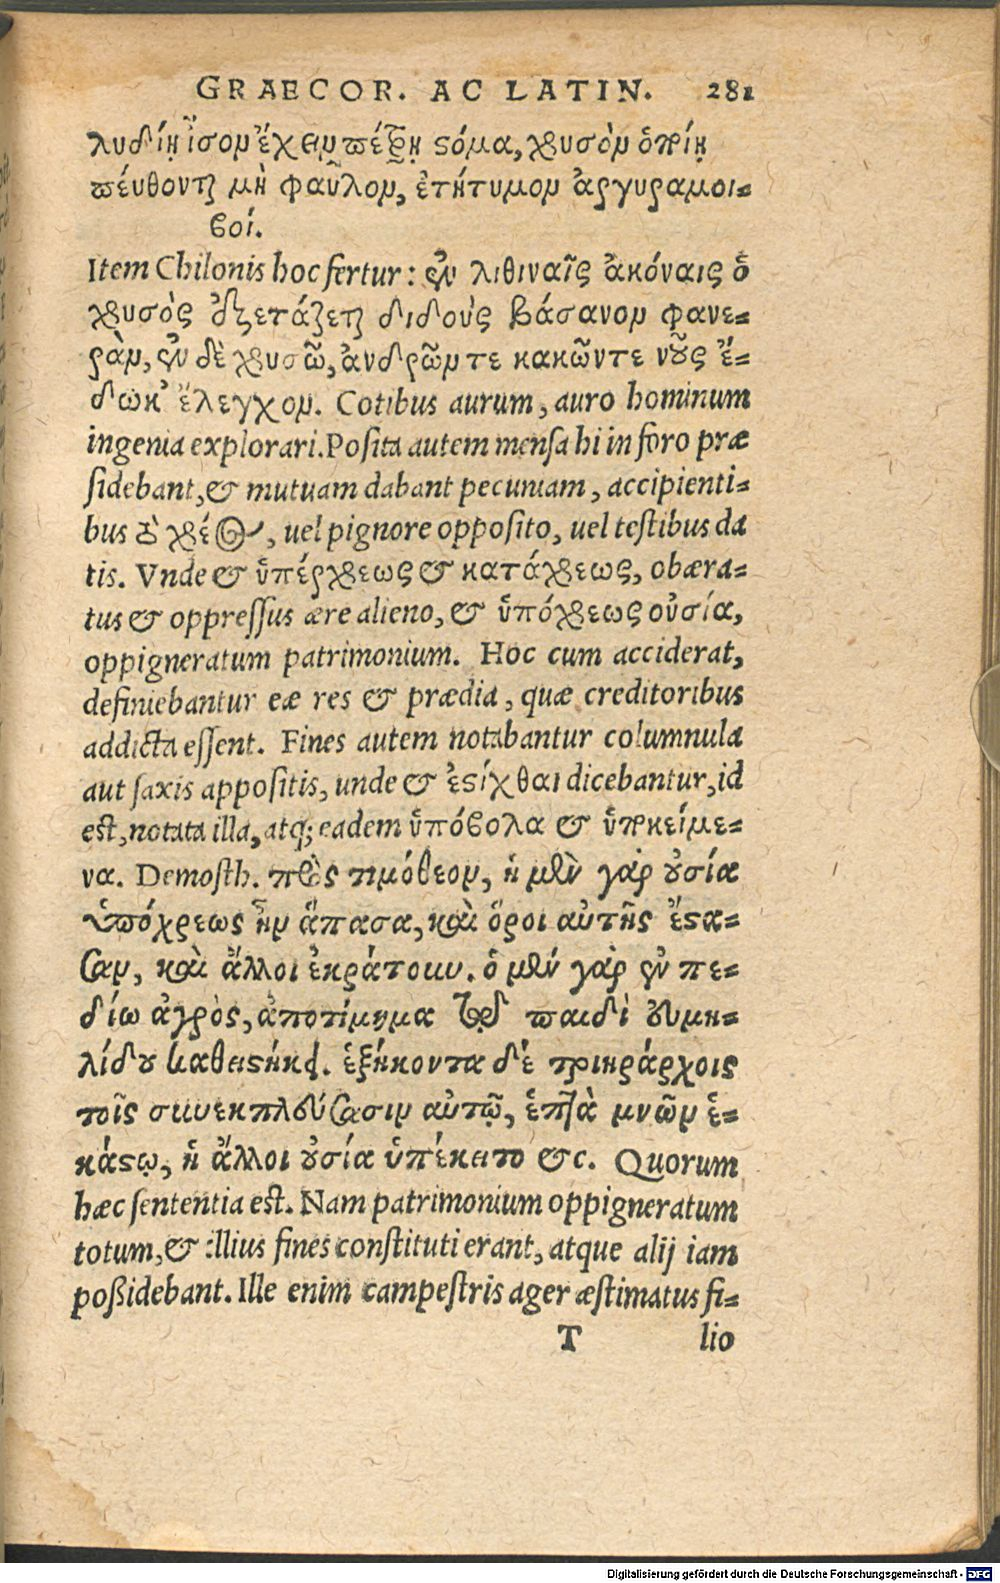 GRAECOR. AC LATIN. 281
λυδίη ἴσον ἔχειν πέτρη στόμα, χρυσὸν ὁτρίη
πεύθονται μὴ φαῦλον, ἐτήτυμον ἀργυραμοι-
βοί.
Item Chilonis hoc fertur: ἐν λιθιναῖς ἀκόναις ὁ
χρυσὸς ἐξετάζεται διδοὺς βάσανον φανε-
ρὰν, ἐν δὲ χρυσῶ, ἀνδρῶν τε κακῶντε νοῦς ἔ-
δωκ' ἔλεγχον. Cotibus aurum, auro hominum
ingenia explorari. Posita autem mensa hi in foro præ
sidebant, & mutuam dabant pecuniam, accipienti-
bus τὸ χρέος, uel pignore opposito, uel testibus da
tis. Vnde & ὑπέρχρεως & κατάχρεως, obæra-
tus & oppressus ære alieno, & ὑπόχρεως οὐσία,
oppigneratum patrimonium. Hoc cum acciderat,
definiebantur eæ res & prædia, quæ creditoribus
addicta essent. Fines autem notabantur columnula
aut saxis appositis, unde & ἐστίχθαι dicebantur, id
est, notata illa, atq; eadem ὑπόβολα & ὑποκείμε-
να. Demosth. πρὸς τιμόθεον, ἡ μὲν γὰρ οὐσία
ὑπόχρεως ἦν ἅπασα, καὶ ὅροι αὐτῆς ἔστα-
σαν, καὶ ἄλλοι ἐκράτουν. ὁ μὲν γὰρ ἐν πε-
δίω ἀγρὸς, ἀποτίμημα τῷ παιδὶ ουμη-
λίδου καθειστήκει. ἑξήκοντα δὲ τριηράρχοις
τοῖς συνεκπλεύσασιν αὐτῷ, ἑπτὰ μνῶν ἑ-
κάστῳ, ἡ ἄλλοι οὐσία ὑπέκειτο &c. Quorum
hæc sententia est. Nam patrimonium oppigneratum
totum, & illius fines constituti erant, atque alij iam
poßidebant. Ille enim campestris ager æstimatus fi-
T lio
Digitalisierung gefördert durch die Deutsche Forschungsgemeinschaft - DFG